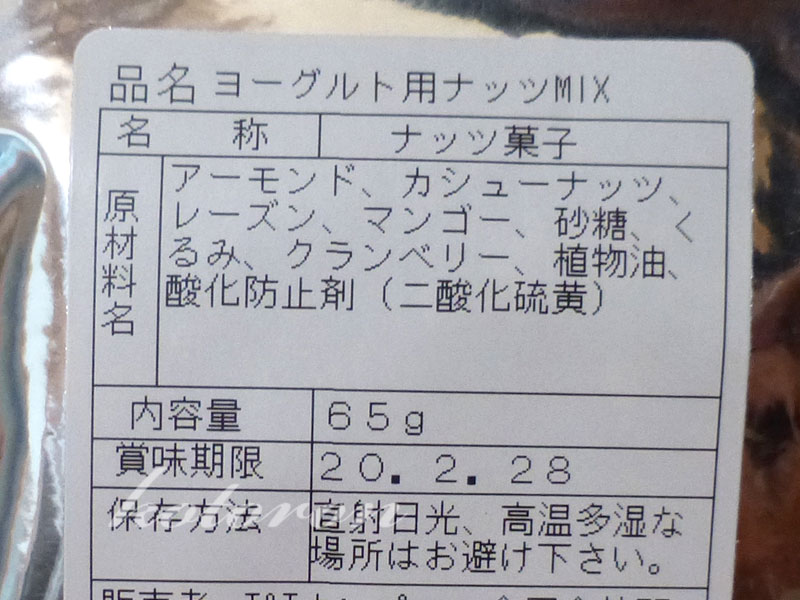 品名 ヨーグルト用ナッツMIX
名 称 ナッツ菓子
原材料名 アーモンド、カシューナッツ、
レーズン、マンゴー、砂糖、く
るみ、クランベリー、植物油、
酸化防止剤（二酸化硫黄）
内容量 65g
賞味期限 20.2.28
保存方法 直射日光、高温多湿な
場所はお避け下さい。
販売者